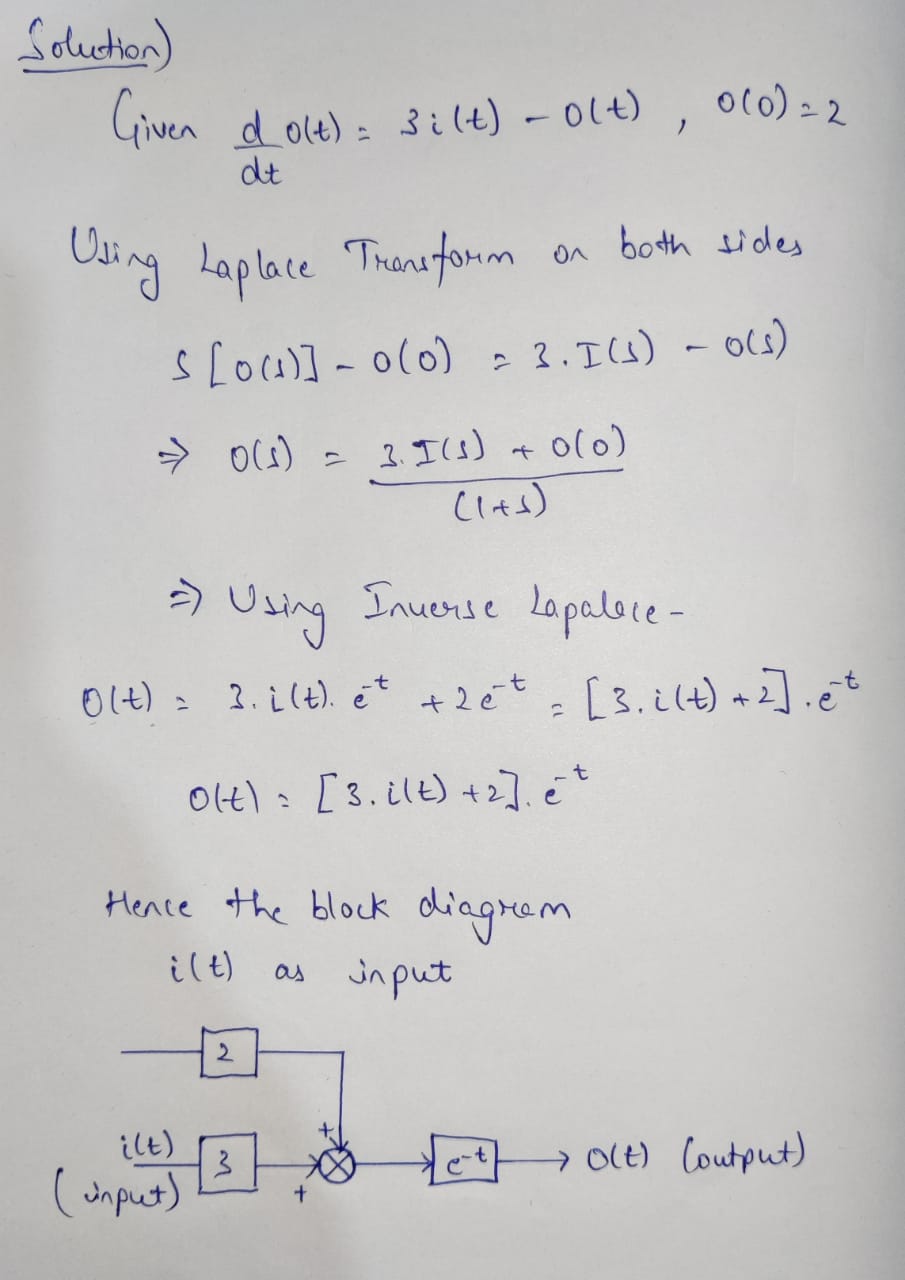 Solution)
Given d/dt o(t) = 3i(t) - o(t) , o(0) = 2
Using Laplace Transform on both sides
s[o(s)] - o(0) = 3.I(s) - o(s)
⇒ o(s) = 3.I(s) + o(0) / (1+s)
⇒ Using Inverse Lapalace -
o(t) = 3.i(t).e^-t + 2e^-t = [3.i(t) + 2].e^-t
o(t) = [3.i(t) + 2].e^-t
Hence the block diagram
i(t) as input
2
+
i(t) 3 + e^-t → o(t) (output)
(input)